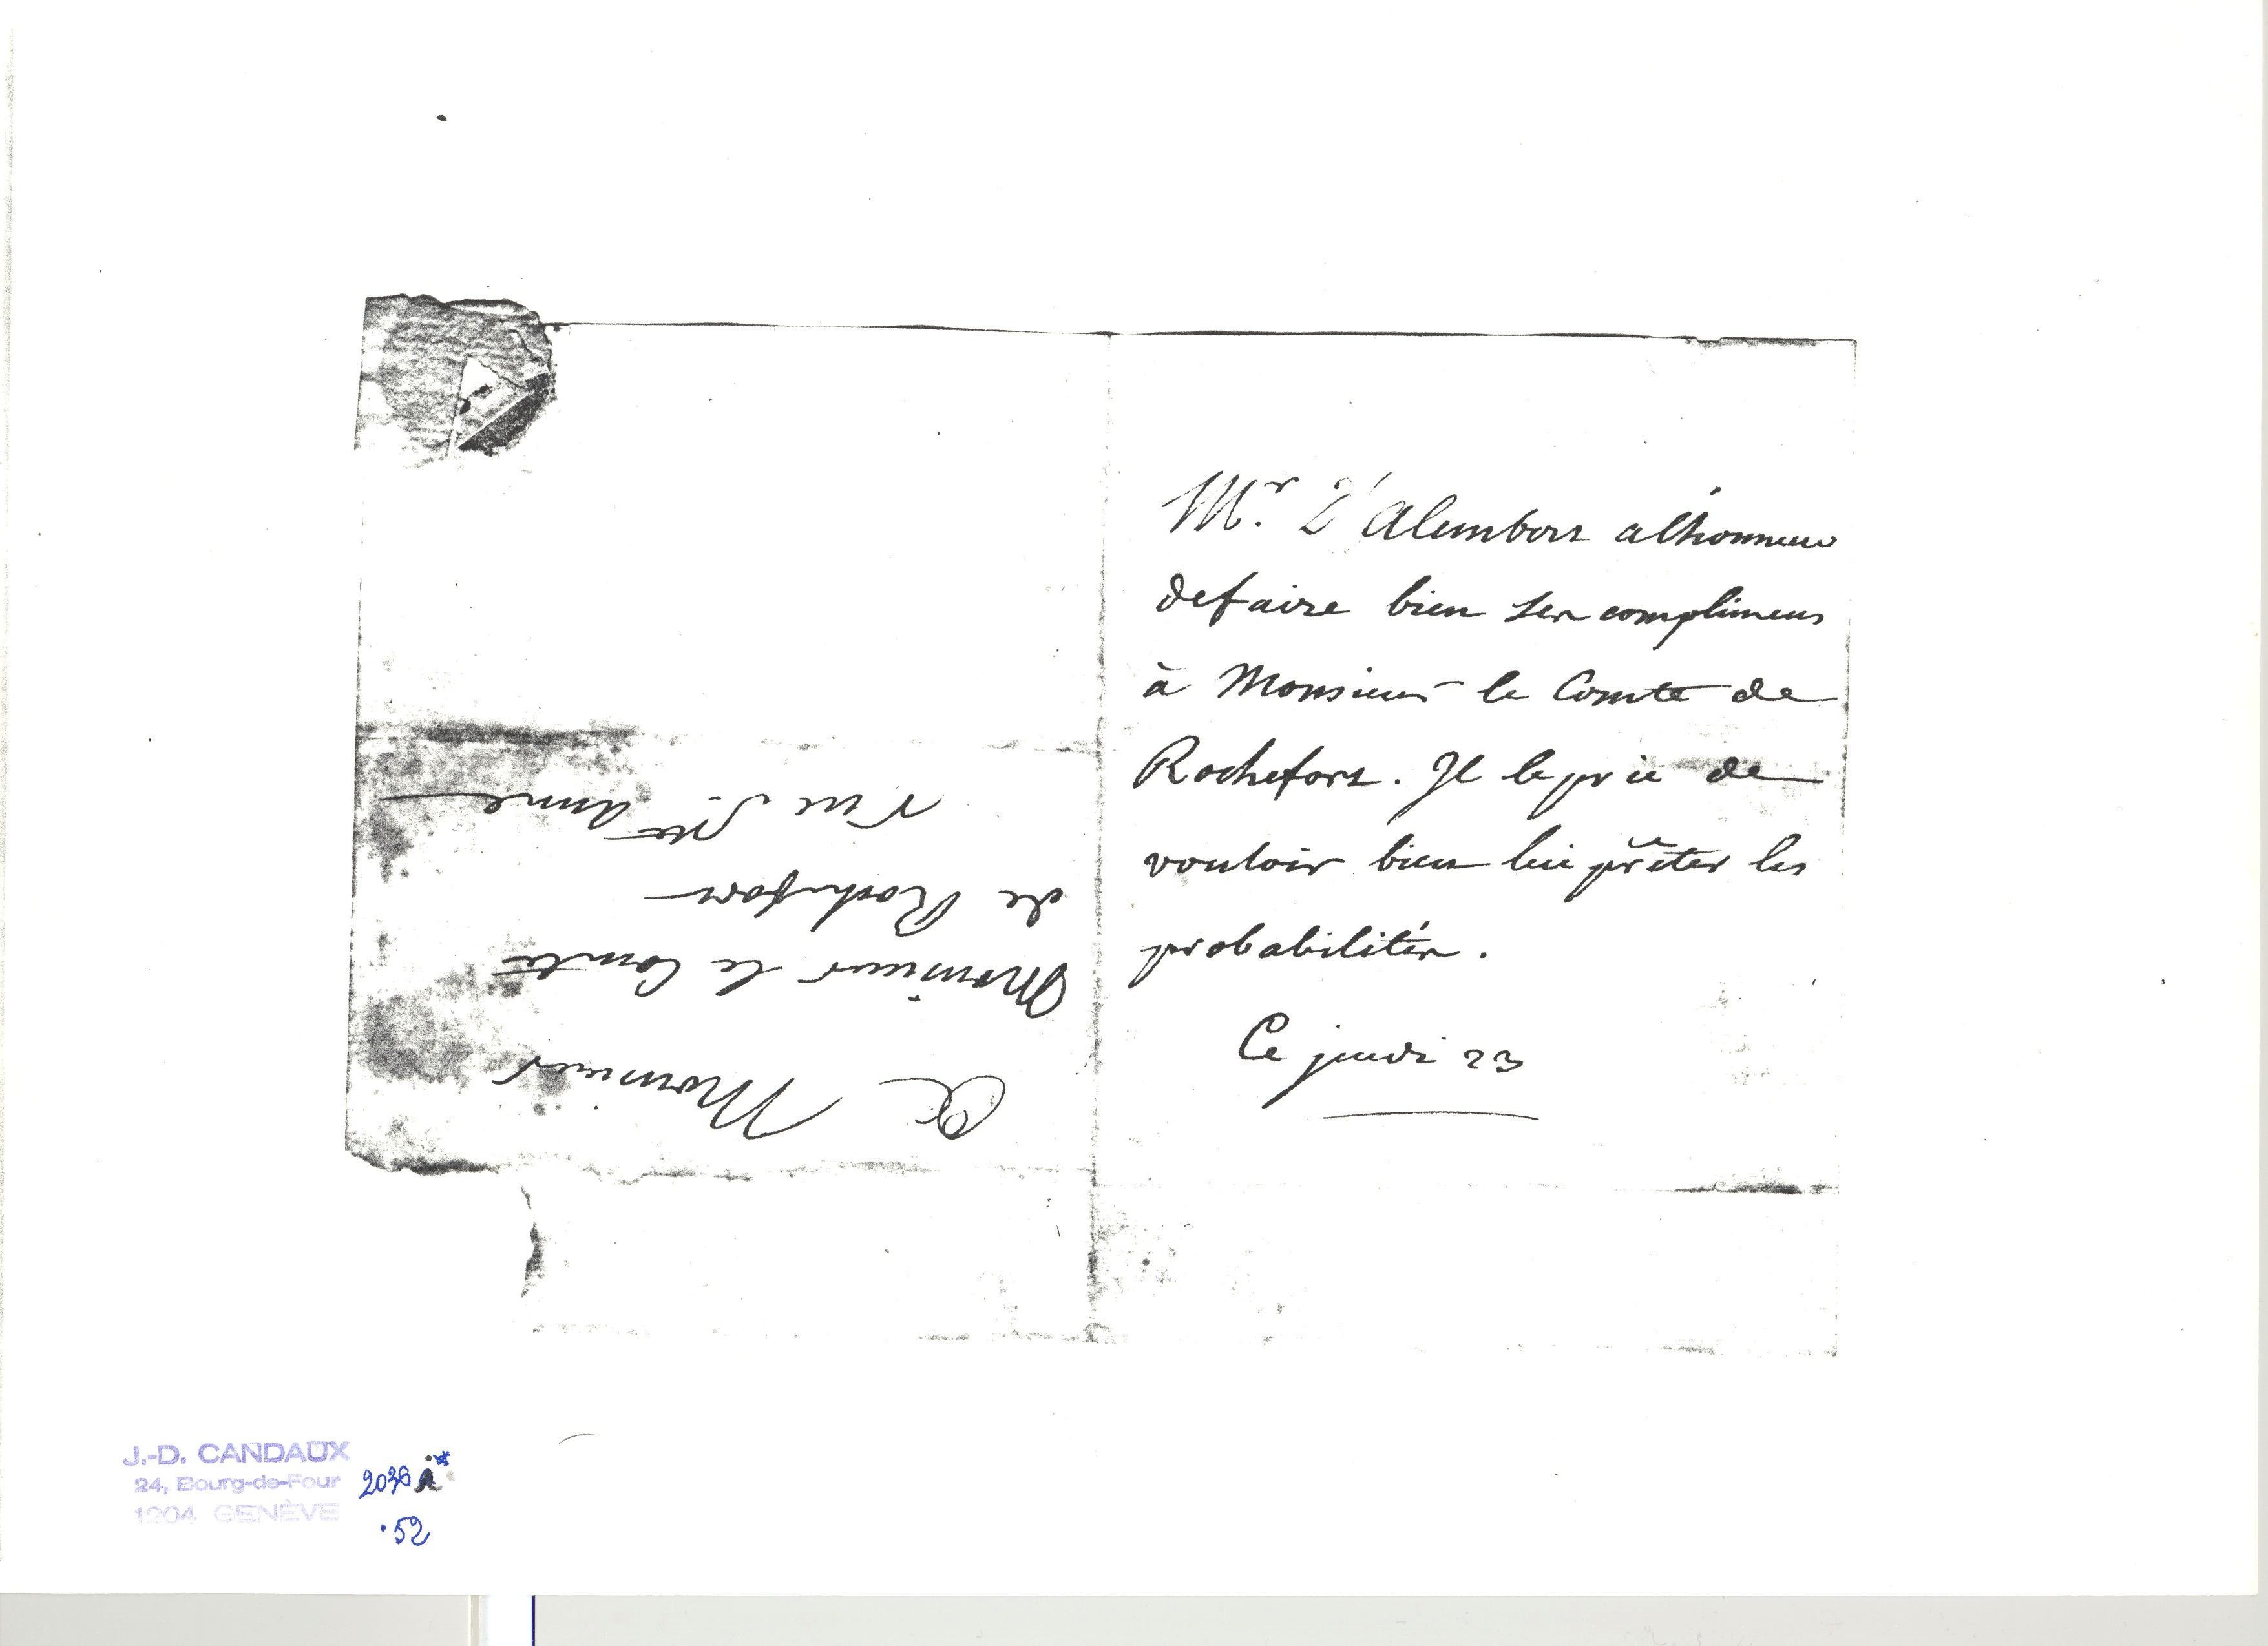 Mr. D'Alembert a l'honneur
de faire bien ses complimens
à Monsieur le Comte de
Rochefort. Il le prie de
vouloir bien lui prêter les
probabilités.
Ce jeudi 23
A Monsieur
Monsieur le Comte
de Rochefort
rue Ste Anne
J.-D. CANDAUX
24, Bourg-de-Four
1204 GENÈVE
2036
.52